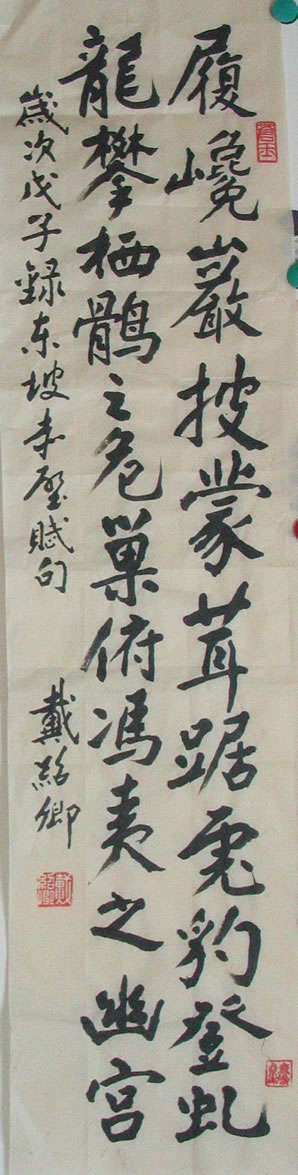 履巉巖披蒙茸踞虎豹登虬
龍攀栖鶻之危巢俯馮夷之幽宫
歲次戊子録东坡赤壁賦句
戴紹卿